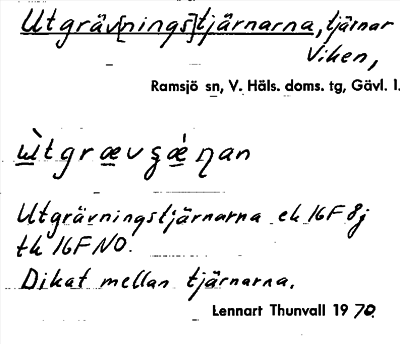 Utgräv[nings]tjärnarna, tjärnar
Viken,
Ramsjö sn, V. Häls. doms. tg, Gävl. l.
ẁtgrævʂǽŋan
Utgrävningstjärnarna ek 16F 8j
tk 16F NO.
Dikat mellan tjärnarna.
Lennart Thunvall 1970.